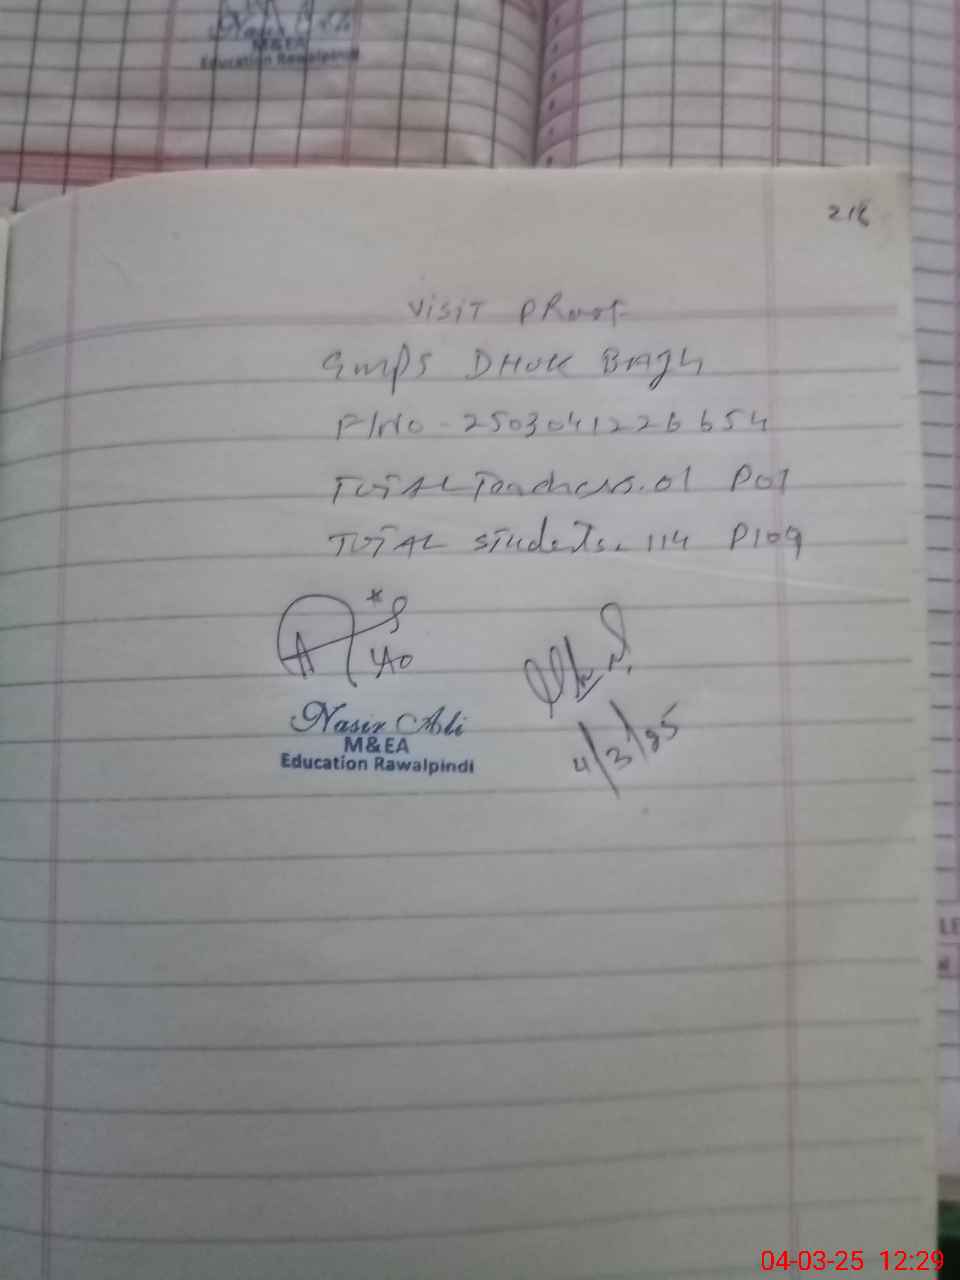 M&EA
Education Rawalpindi
218
VISIT PRoof
GMPS DHOK BAgh
P/NO - 2503041226654
TOTAL Teachers. 01 P01
TOTAL students. 114 P109
Nasir Ali
M&EA
Education Rawalpindi
4/3/25
LE
04-03-25 12:29